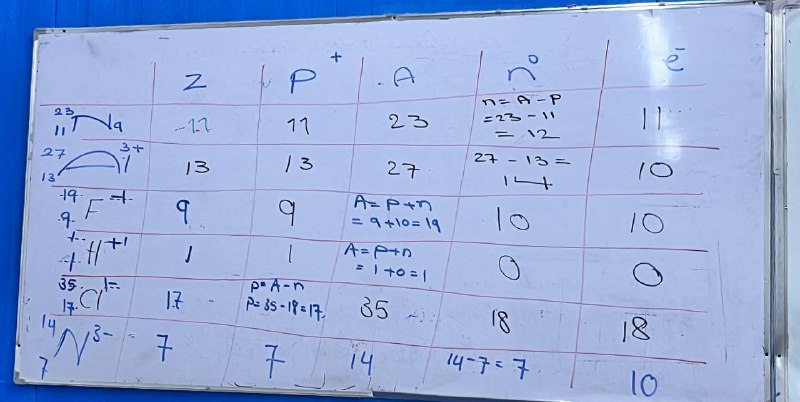 Z P⁺ A n⁰ e⁻
²³₁₁Na 11 11 23 n = A - P = 23 - 11 = 12 11
²⁷₁₃Al³⁺ 13 13 27 27 - 13 = 14 10
¹⁹₉F⁻¹ 9 9 A = P + n = 9 + 10 = 19 10 10
¹₁H⁺¹ 1 1 A = P + n = 1 + 0 = 1 0 0
³⁵₁₇Cl¹⁻ 17 P = A - n P = 35 - 18 = 17 35 18 18
¹⁴₇N³⁻ 7 7 14 14 - 7 = 7 10